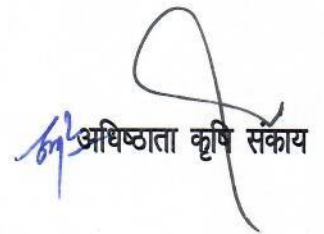 अधिष्ठाता कृषि संकाय